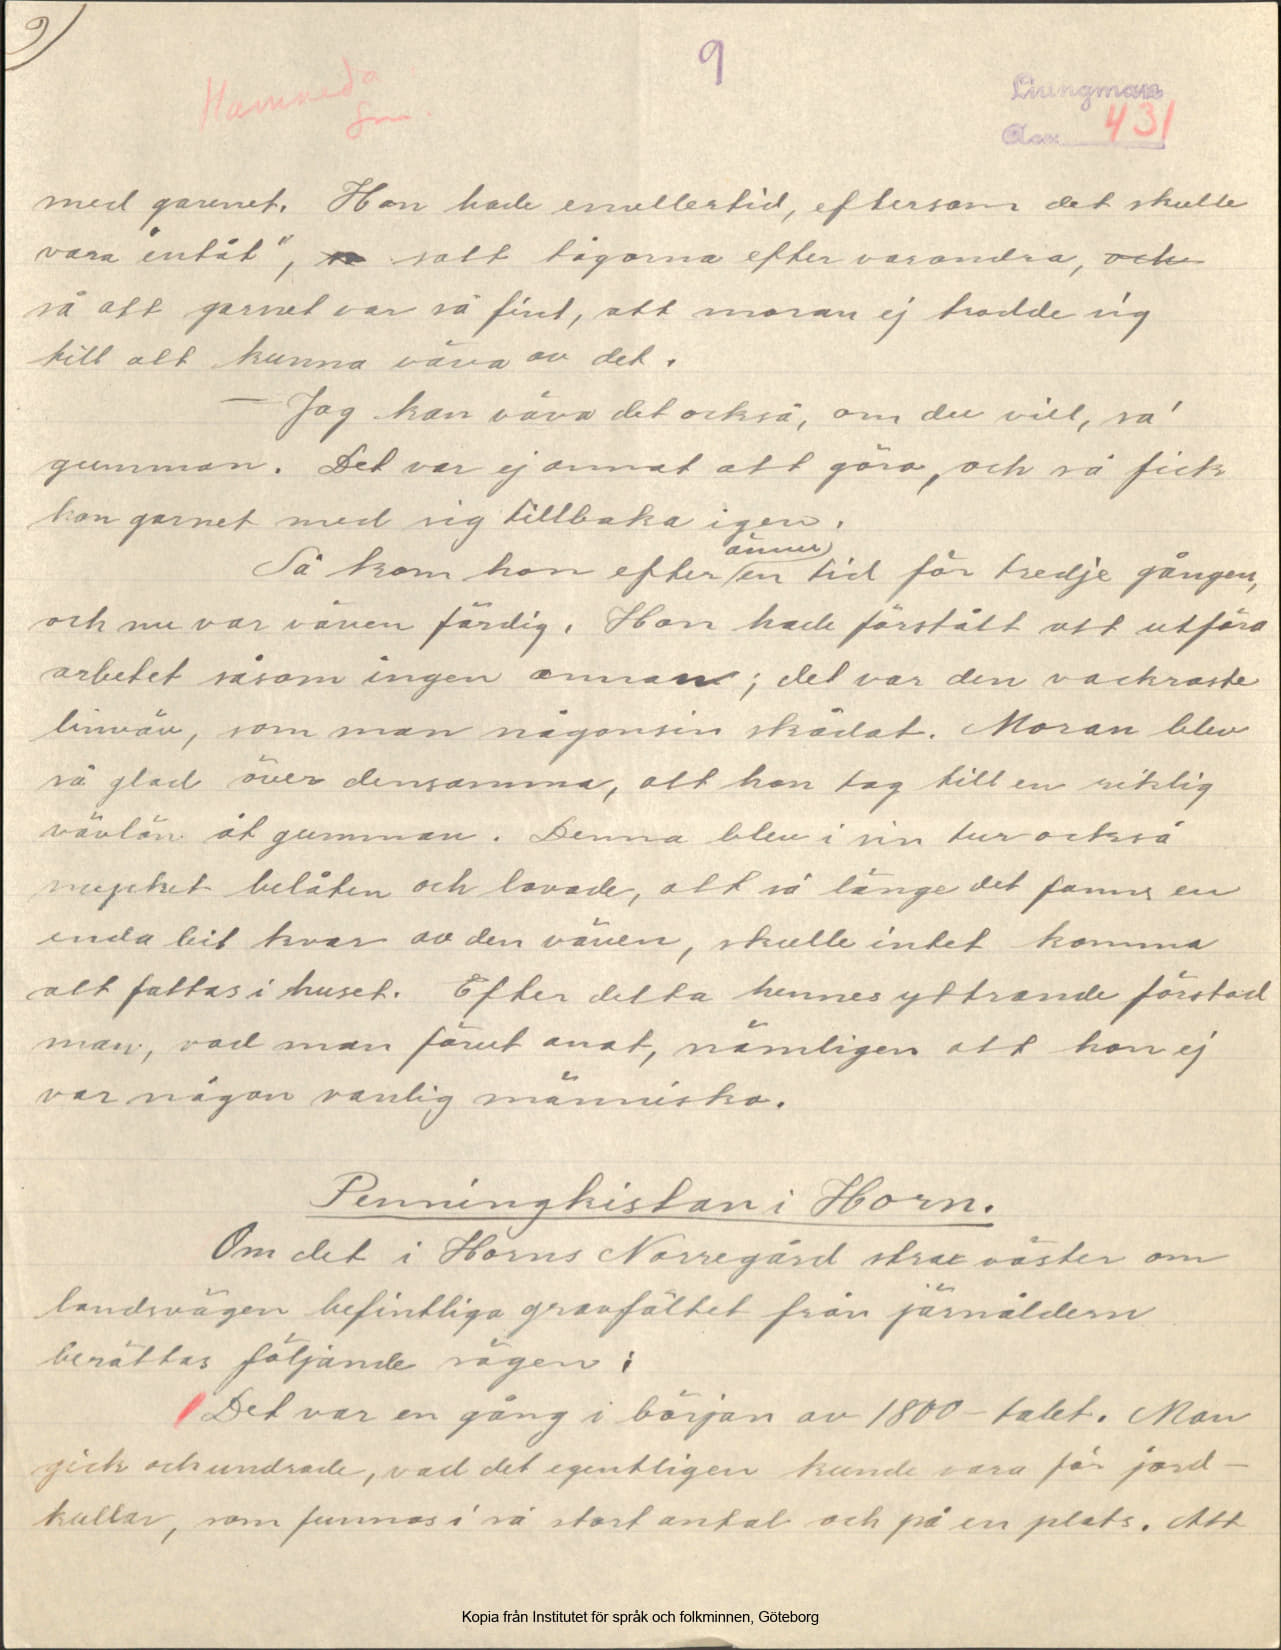 9)
9
Hamneda
Sm.
Ljungman
431
med garnet. Hon hade emellertid, eftersom det skulle
vara "entåt", satt tågorna efter varandra, och
så att garnet var så fint, att moran ej trodde sig
till att kunna väva av det.
— Jag kan väva det också, om du vill, sa'
gumman. Det var ej annat att göra, och så fick
hon garnet med sig tillbaka igen.
Så kom hon efter ännu en tid för tredje gången,
och nu var väven färdig. Hon hade förstått att utföra
arbetet såsom ingen annan; det var den vackraste
linväv, som man någonsin skådat. Moran blev
så glad över densamma, att hon tog till en riklig
vävlön åt gumman. Denna blev i sin tur också
mycket belåten och lovade, att så länge det fanns en
enda bit kvar av den väven, skulle intet komma
att fattas i huset. Efter detta hennes yttrande förstod
man, vad man förut anat, nämligen att hon ej
var någon vanlig människa.
Penningkistan i Horn.
Om det i Horns Norregård strax väster om
landsvägen befintliga gravfältet från järnåldern
berättas följande sägen:
Det var en gång i början av 1800-talet. Man
gick och undrade, vad det egentligen kunde vara för jord-
kullar, som funnos i så stort antal och på en plats. Att
Kopia från Institutet för språk och folkminnen, Göteborg